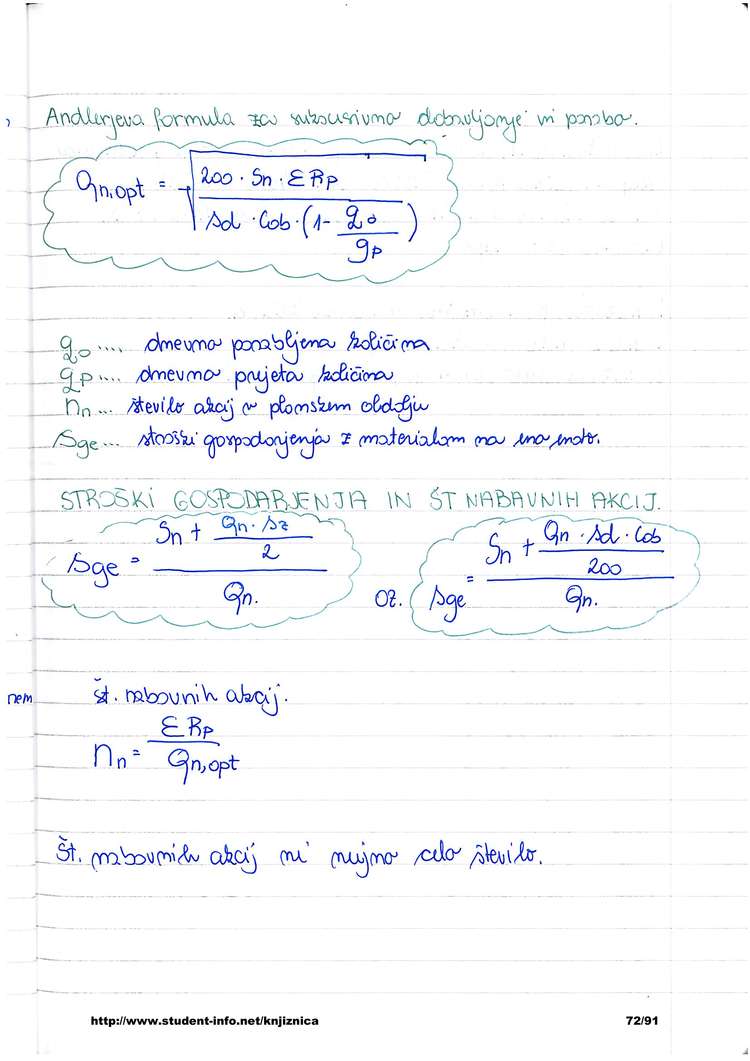 Andlerjeva formula za sukcesivno dobavljanje in porabo.
Qn,opt = √(200 · Sn · ΣRp / (sd · Cob · (1 - qo/qp)))
qo .... dnevno porabljena količina
qp .... dnevno prejeta količina
nn ... število akcij v planskem obdobju
sge ... stroški gospodarjenja z materialom na eno enoto.
STROŠKI GOSPODARJENJA IN ŠT NABAVNIH AKCIJ.
sge = (Sn + (Qn · sz)/2) / Qn. oz. sge = (Sn + (Qn · sd · Cob)/200) / Qn.
nem
Št. nabavnih akcij.
nn = ΣRp / Qn,opt
Št. nabavnih akcij ni nujno celo število.
http://www.student-info.net/knjiznica 72/91